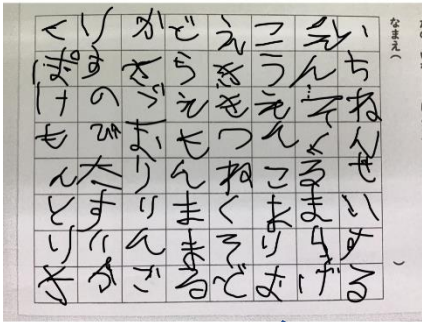 なまえ（　）
いちねんせいする
えんそくるまらげ
こうえんこまりむ
えききつねくそで
どらえもんままる
かざづまりりんご
りすのび太すいか
くぽけもんとりき